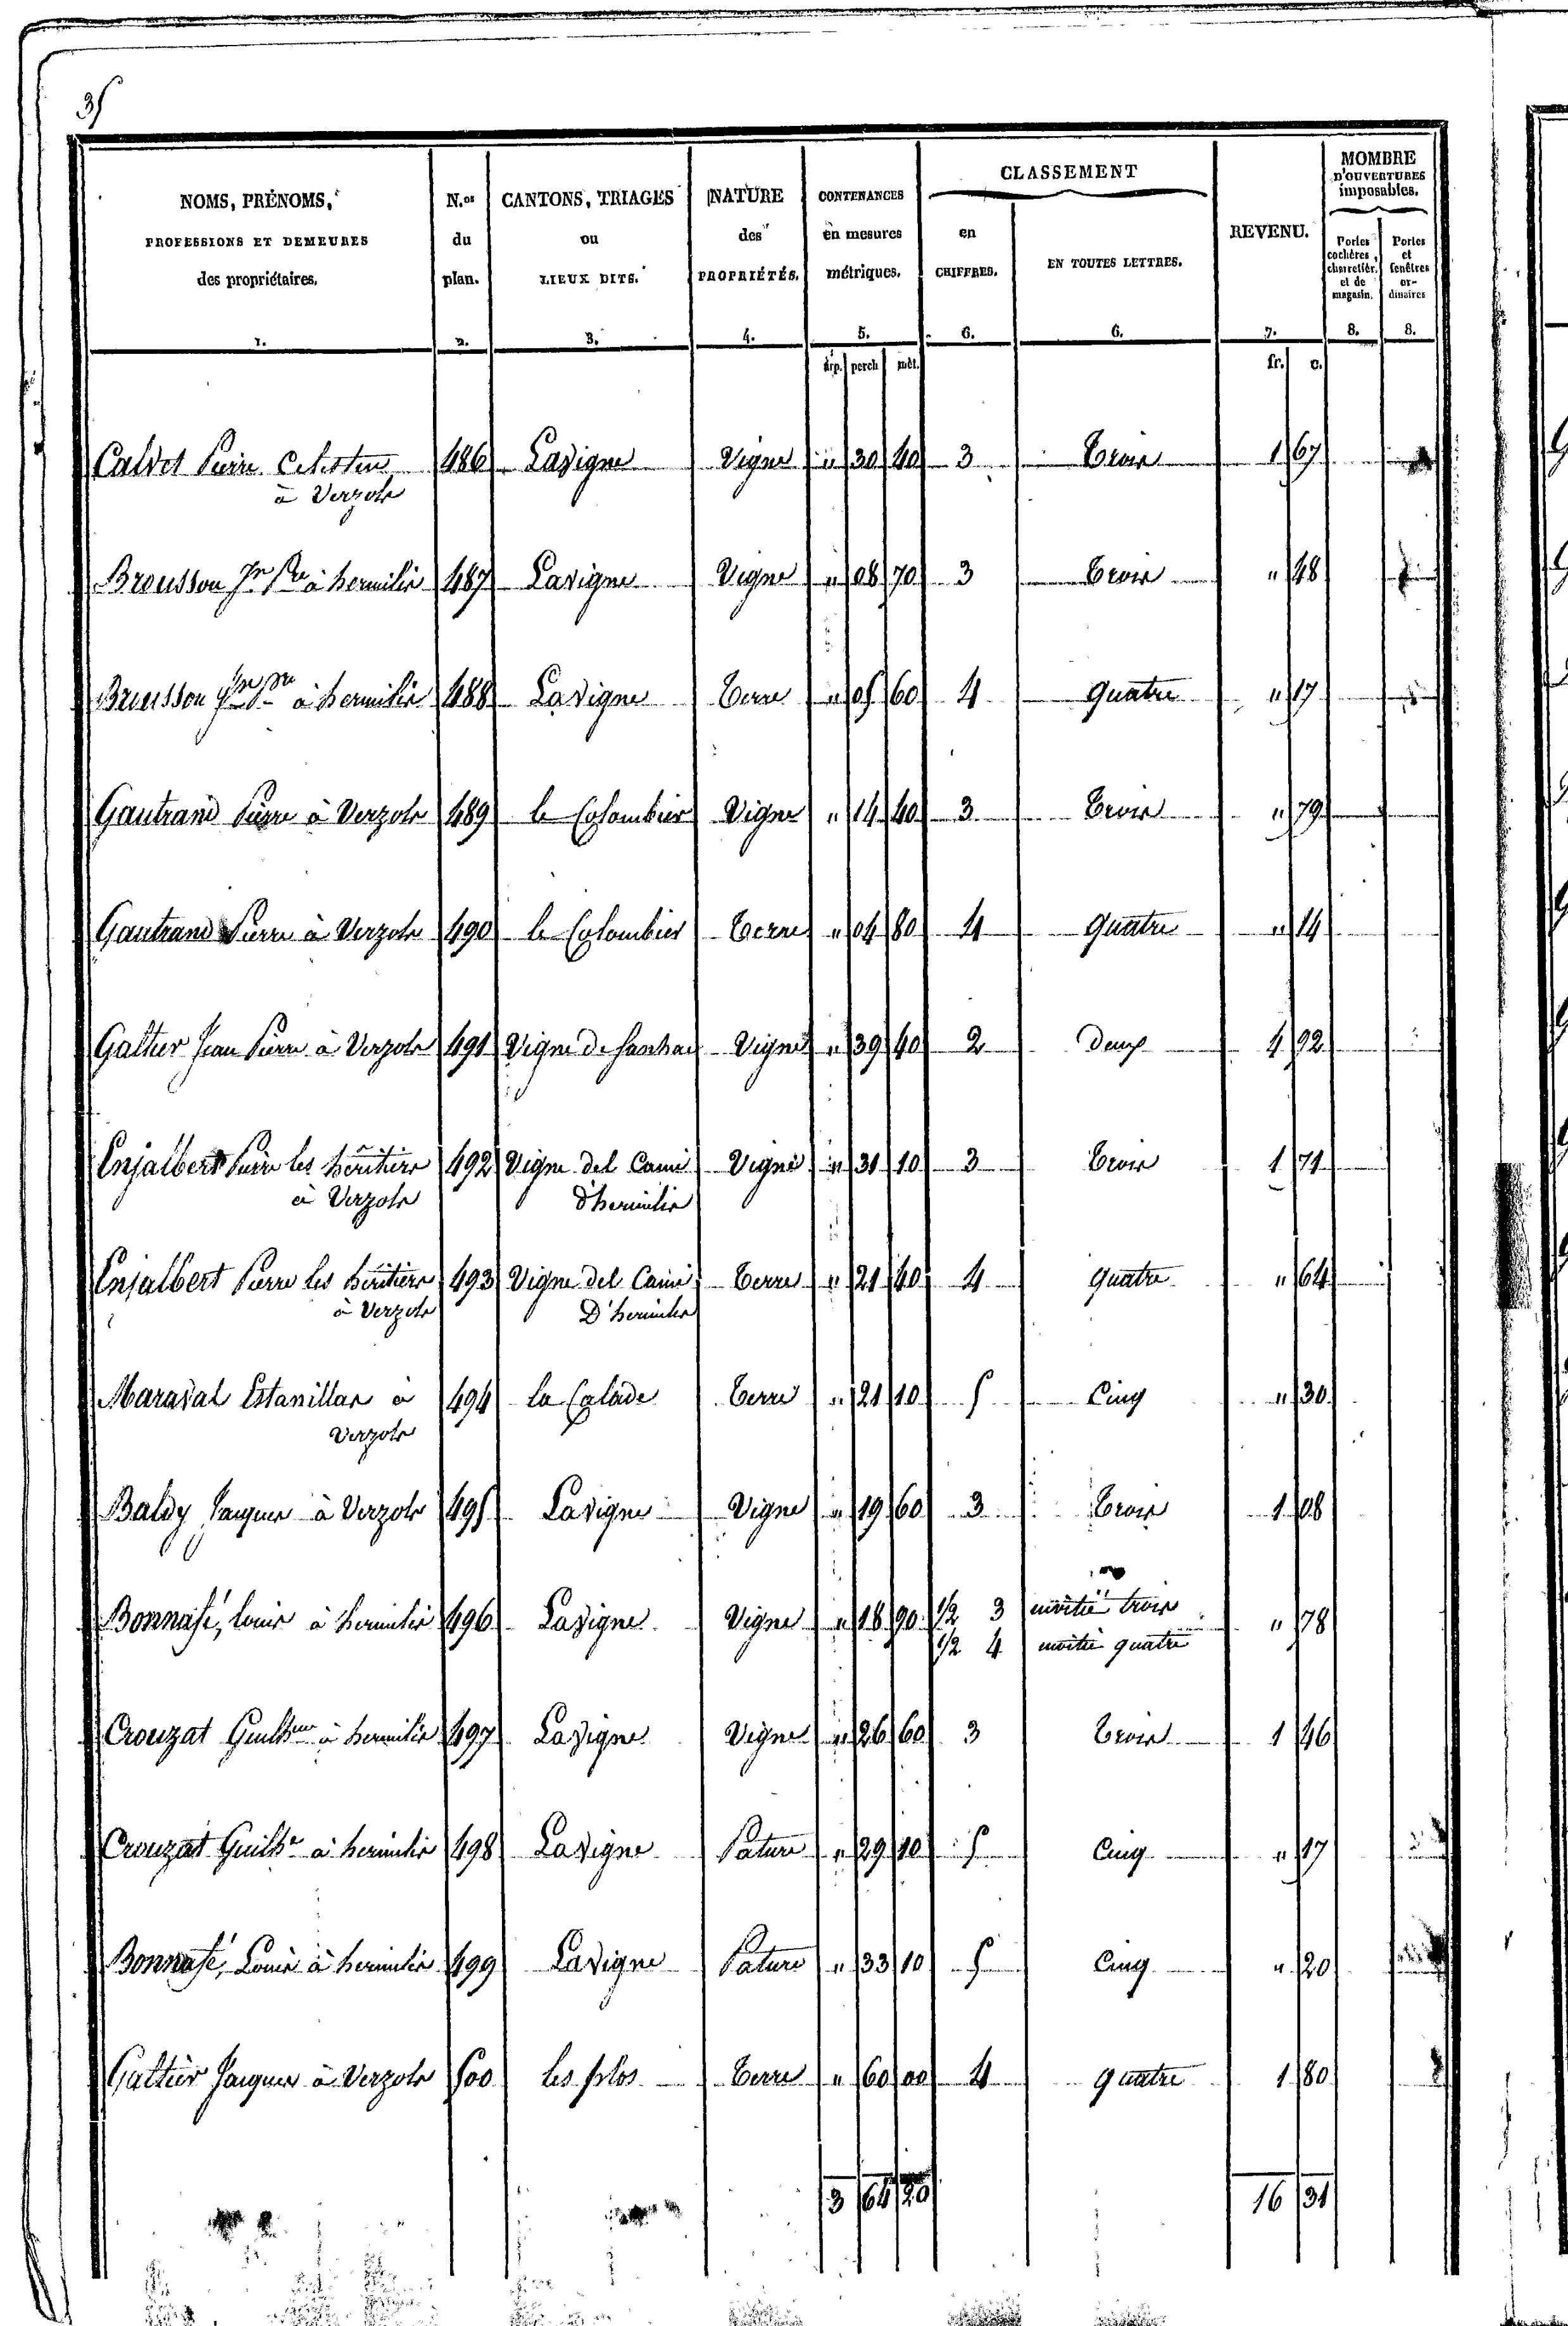 35
NOMS, PRÉNOMS, PROFESSIONS ET DEMEURES des propriétaires. 1.
N.os du plan. 2.
CANTONS, TRIAGES ou LIEUX DITS. 3.
NATURE des PROPRIÉTÉS. 4.
CONTENANCES en mesures métriques. 5.
CLASSEMENT
en CHIFFRES. 6.
EN TOUTES LETTRES. 6.
REVENU. 7.
MOMBRE D'OUVERTURES imposables.
Portes cochères, charretièr. et de magasin. 8.
Portes et fenêtres ordinaires 8.
arp. perch mèt. fr. c.
Calvet Pierre Celestin 486 Lavigne Vigne " 30 40 3 Trois 1 67
à Verzols
Brousson Jn Pre à hermilis 487 Lavigne Vigne " 08 70 3 Trois " 48
Brousson Jn Pre à hermilis 488 Lavigne Terre " 05 60 4 Quatre " 17
Gautrand Pierre à Verzols 489 le Colombier Vigne " 14 40 3 Trois " 79
Gautrand Pierre à Verzols 490 le Colombier Terre " 04 80 4 Quatre " 14
Galtier Jean Pierre à Verzols 491 Vigne de Vigne " 39 40 2 Deux 4 92
Enjalbert Pierre les héritiers 492 Vigne del Cami Vigne " 31 10 3 Trois 1 71
à Verzols d'hermilis
Enjalbert Pierre les héritiers 493 Vigne del Cami Terre " 21 40 4 Quatre " 64
à Verzols D'hermilis
Maraval Estanillas à 494 la Calade Terre " 21 10 5 Cinq " 30
Verzols
Baldy Jacques à Verzols 495 Lavigne Vigne " 19 60 3 Trois 1 08
Bonnafé, Louis à hermilis 496 Lavigne Vigne " 18 90 1/2 3 moitié trois " 78
1/2 4 moitié quatre
Crouzat Guilhme à hermilis 497 Lavigne Vigne " 26 60 3 Trois 1 46
Crouzat Guilhe à hermilis 498 Lavigne Pature " 29 10 5 Cinq " 17
Bonnafé, Louis à hermilis 499 Lavigne Pature " 33 10 5 Cinq " 20
Galtier Jacques à Verzols 500 les plos Terre " 60 00 4 quatre 1 80
3 64 20 16 31